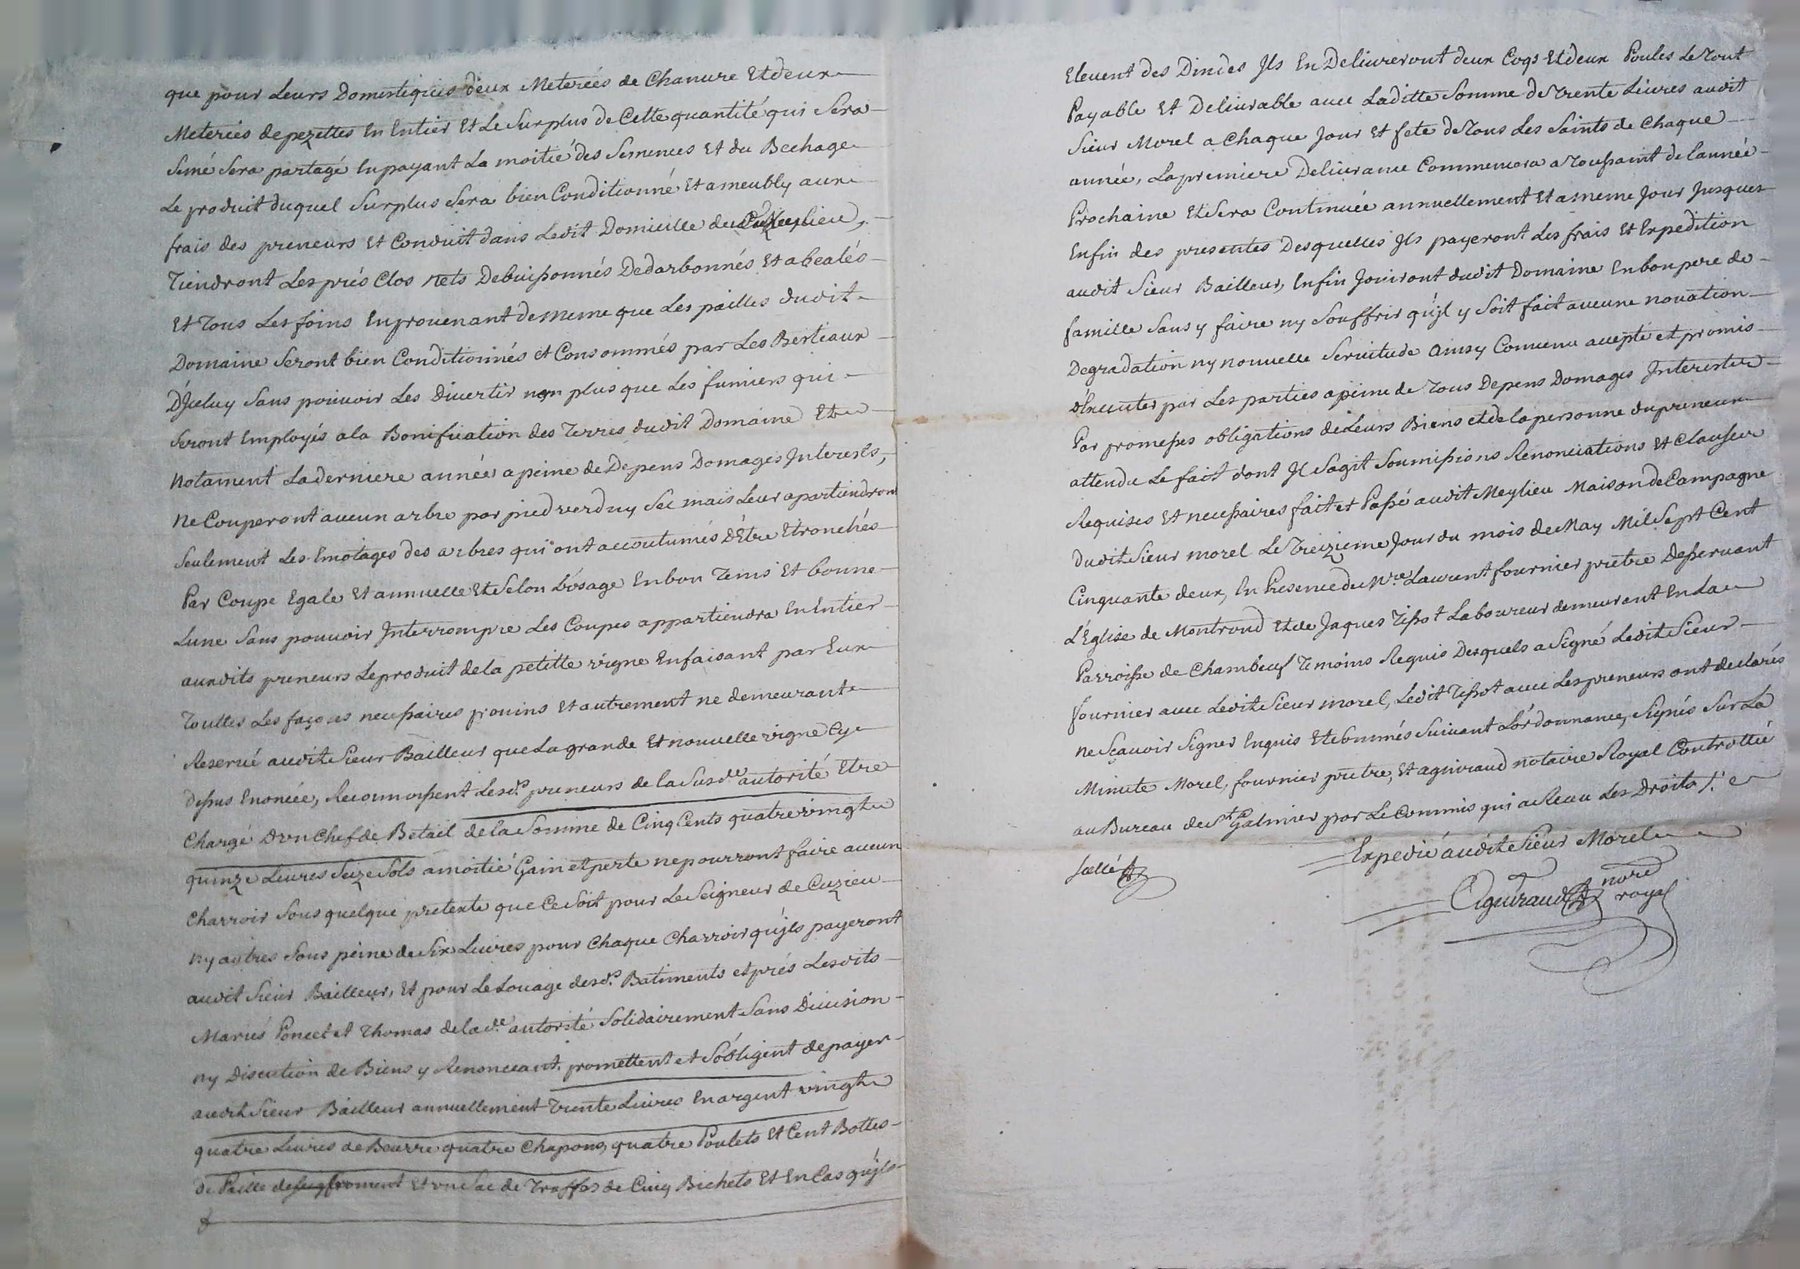 que pour Leurs Domestiques deux Meterées de Chanure Et deux
Meterées de pezettes En Entier Et Le Surplus de Cette quantité qui Sera
Semé Sera partagé En payant La moitié des Semences Et du Bechage
Le produit duquel Surplus Sera bien Conditionné Et ameubly aux
frais des preneurs Et Conduit dans Ledit Domicille de
Tiendront Les prés Clos Nets Debuissonnés Dedarbonnés Et abealés
Et Tous Les foins En prouenant de meme que Les pailles dudit
Domaine Seront bien Conditionnés et Consommés par Les Bestiaux
D'Jceluy Sans pouuoir Les Diuertir non plus que Les fumiers qui
Seront Employés a la Bonification des Terres dudit Domaine Et
Notament La derniere année a peine de Depens Domages Interests,
Ne Couperont aucun arbre par pied verd ny Sec mais Leur apartiendront
Seulement Les Emotages des arbres qui ont accoutumés D'Etre Etronchés
Par Coupe Egale Et annuelle Et Selon L'usage En bon Tems Et bonne
Lune Sans pouuoir Interrompre Les Coupes appartiendra En Entier
auxdits preneurs Le produit de la petitte vigne En faisant par Eux
Touttes Les façons necessaires prouins Et autrement ne demeurant
Reserué audit Sieur Bailleur que La grande Et nouuelle vigne Cy
dessus Enoncée, Reconnoissent Lesd.s preneurs de la Susd.e autorité Etre
Chargé D'un Chef de Betail de la Somme de Cinq Cents quatre vingt
quinze Liures Seize Sols a moitié Gain et perte ne pourront faire aucun
Charroir Sous quelque pretexte que Ce Soit pour Le Seigneur de Cuzieu
ny autres Sous peine de Six Liures pour Chaque Charroir qu'jls payeront
audit Sieur Bailleur, Et pour Le Louage desd.s Batiments et prés Lesdits
Mariés Poncet et Thomas de lad.e autorité Solidairement Sans Diuision
ny Discution de Biens y Renonceant, promettent et S'obligent de payer
audit Sieur Bailleur annuellement Trente Liures En argent vingt
quatre Liures de Beurre quatre Chapons, quatre Poulets Et Cent Bottes
de Paille de froment Et un Sac de Truffes de Cinq Bichets Et En Cas qu'jls
Eleuent des Dindes Jls En Deliureront deux Coqs Et deux Poules Le Tout
Payable Et Deliurable auec Laditte Somme de Trente Liures audit
Sieur Morel a Chaque Jour Et fete de Tous Les Saints de Chaque
année, La premiere Deliurance Commencera a Toussaint de L'année
Prochaine Et Sera Continuée annuellement Et a meme Jour Jusques
Enfin des presentes Desquelles Jls payeront Les frais Et Expedition
audit Sieur Bailleur, Enfin Jouiront dudit Domaine En bon pere de
famille Sans y faire ny Souffrir qu'jl y Soit fait aucune nouation
Degradation ny nouuelle Seruitude ainsy Conuenu accepté et promis
D'Executer par Les parties a peine de Tous Depens Domages Interests
Par promesses obligations de Leurs Biens et de la personne du preneur
attendu Le fait dont Jl S'agit Soumissions Renonciations Et Clauses
Requises Et necessaires fait et Passé audit Meylieu Maison de Campagne
dudit Sieur morel Le Treizieme Jour du mois de May Mil Sept Cent
Cinquante deux, En Presence de M.re Laurent fournier prêtre Desseruant
L'Eglise de Montrond Et de Jaques Tissot Laboureur demeurant En La
Parroisse de Chambeuf Temoins Requis Desquels a Signé Ledit Sieur
fournier auec Ledit Sieur morel, Ledit Tissot auec Les preneurs ont declarés
ne Scauoir Signer Enquis Et Sommés Suiuant L'ordonnance, Signés Sur La
Minute Morel, fournier prêtre, Et aguiraud notaire Royal Controllé
au Bureau de St Galmier par Le Commis qui a Receu Les Droits /.
Expedié audit Sieur Morel
Scellé
Aguiraud nore
royal